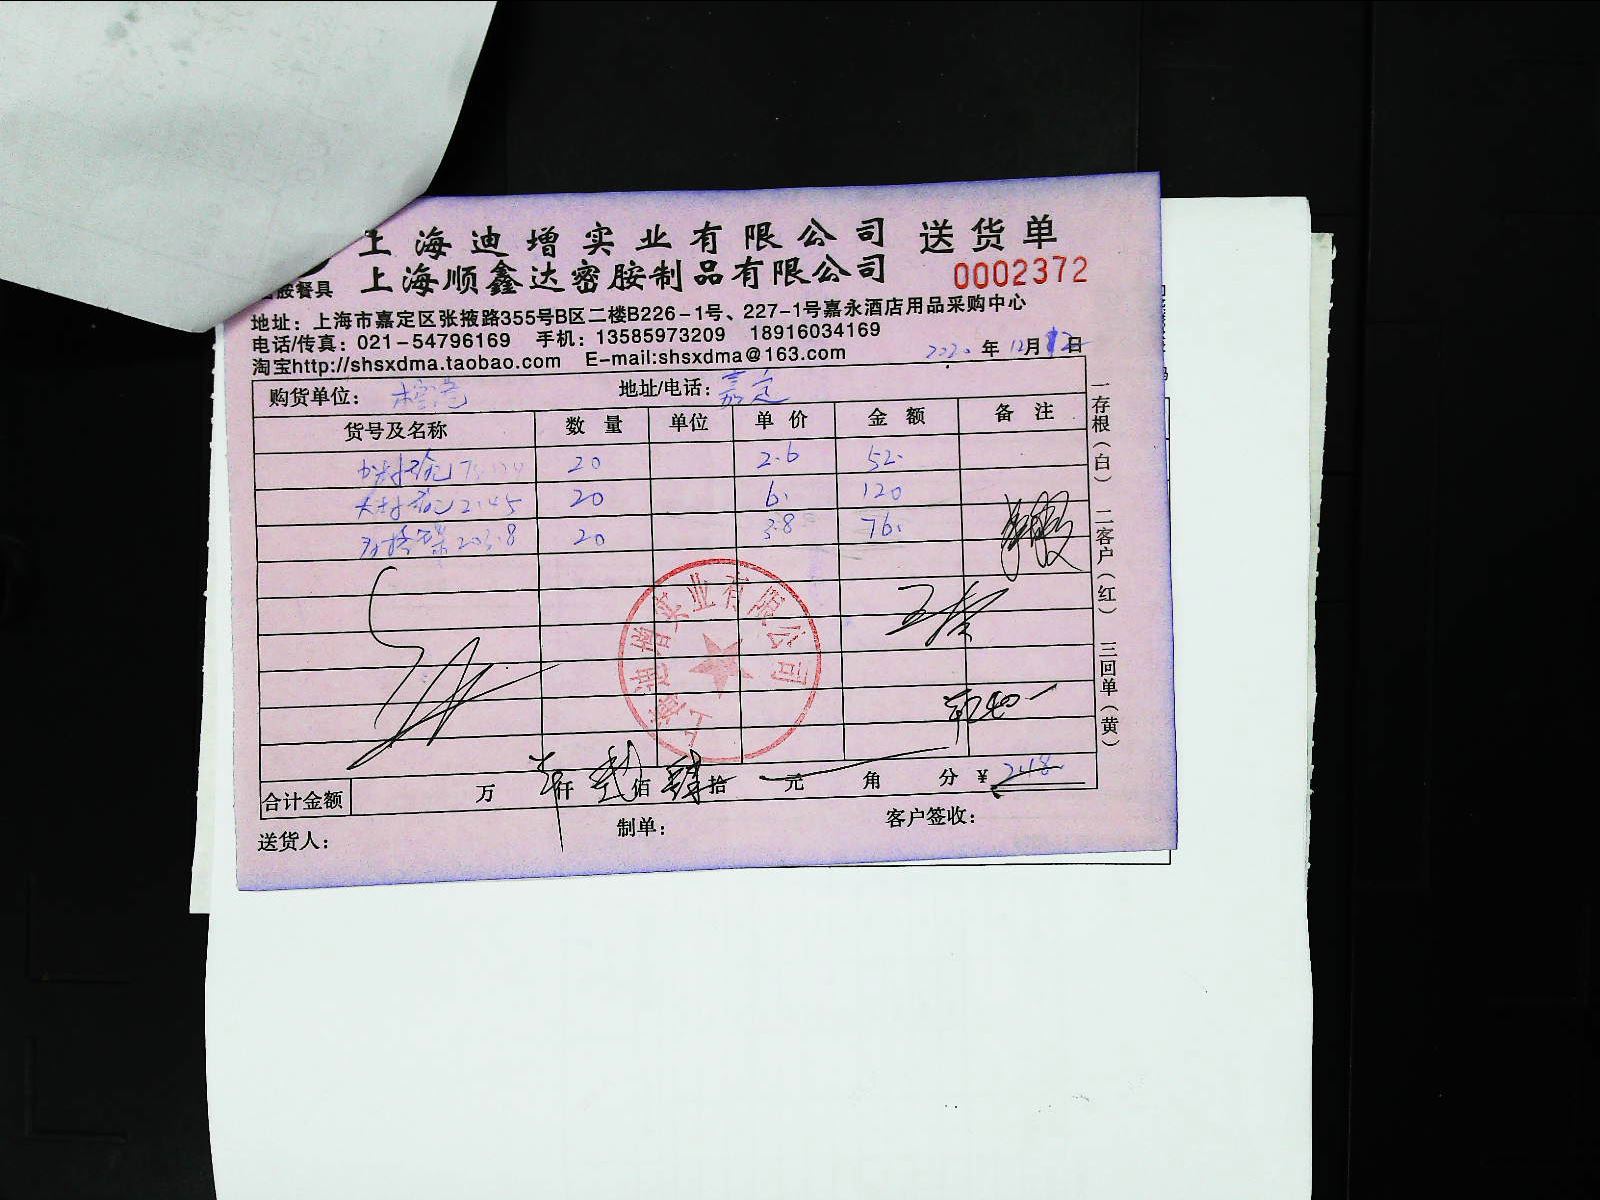 上海迪增实业有限公司 送货单
上海顺鑫达密胺制品有限公司 0002372
胺餐具
地址：上海市嘉定区张掖路355号B区二楼B226-1号、227-1号嘉永酒店用品采购中心
电话/传真：021-54796169 手机：13585973209 18916034169
淘宝http://shsxdma.taobao.com E-mail:shsxdma@163.com 2020年12月12日
购货单位： 地址/电话：嘉定
货号及名称 数量 单位 单价 金额 备注
20 2.6 52.
20 6. 120
20 3.8 76.
上海迪增实业有限公司
合计金额 万 仟 贰佰 肆拾 元 角 分 ￥ 248.
送货人： 制单： 客户签收：
一存根（白） 二客户（红） 三回单（黄）